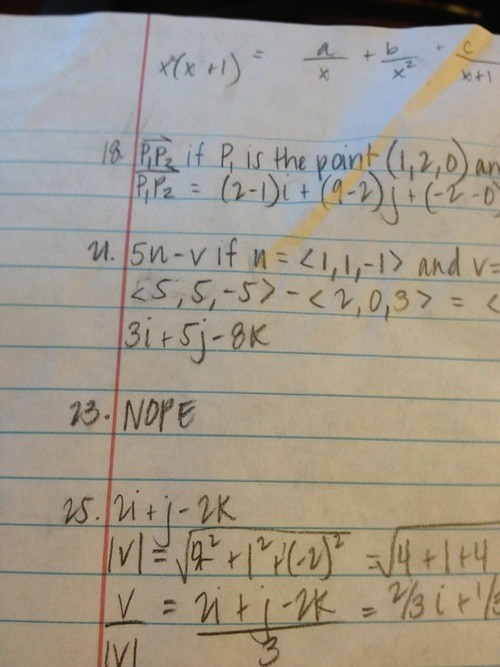 x²(x+1) = a/x + b/x² + c/x+1
18. P₁P₂ if P₁ is the point (1,2,0) an
P₁P₂ = (2-1)i + (9-2)j + (-2-0
21. 5u-v if u = <1,1,-1> and v=
<5,5,-5> - <2,0,3> = <
3i+5j-8k
23. NOPE
25. 2i+j-2k
|v| = √2² + 1² + (-2)² = √4+1+4
v/|v| = 2i+j-2k/3 = 2/3 i + 1/3